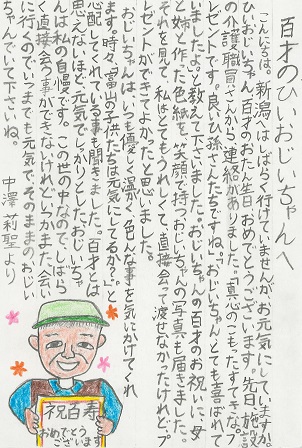 百才のひいおじいちゃんへ
こんにちは。新潟へはしばらく行けていませんが、お元気にしていますか。
ひいおじいちゃん、百才のおたん生日おめでとうございます。先日、施設
の介護職員さんから、連絡がありました。「真心のこもったすてきなプ
レゼントです。良いひ孫さんたちですね。」「おじいちゃん、とても喜ばれて
いましたよ。」と教えて下さいました。おじいちゃんの百才のお祝いに、母
と姉と作った色紙を、笑顔で持つおじいちゃんの写真も届きました。
それを見て、私はとてもうれしくて、直接会って渡せなかったけれど、プ
レゼントができてよかったと思いました。
おじいちゃんは、いつも優しく温かく、色んな事を気にかけてくれ
ます。時々、「富山の子供たちは元気にしてるか？」と
心配してくれている事も聞きました。百才とは
思えないほど、元気でしっかりとしたおじいちゃ
んは私の自慢です。この世の中なので、しばら
く直接会う事ができないけれど、いつかまた、会い
に行くのでいつまでも元気で、そのままの、おじい
ちゃんでいて下さいね。
中澤 莉聖より
祝百寿
おめでとう
ございます